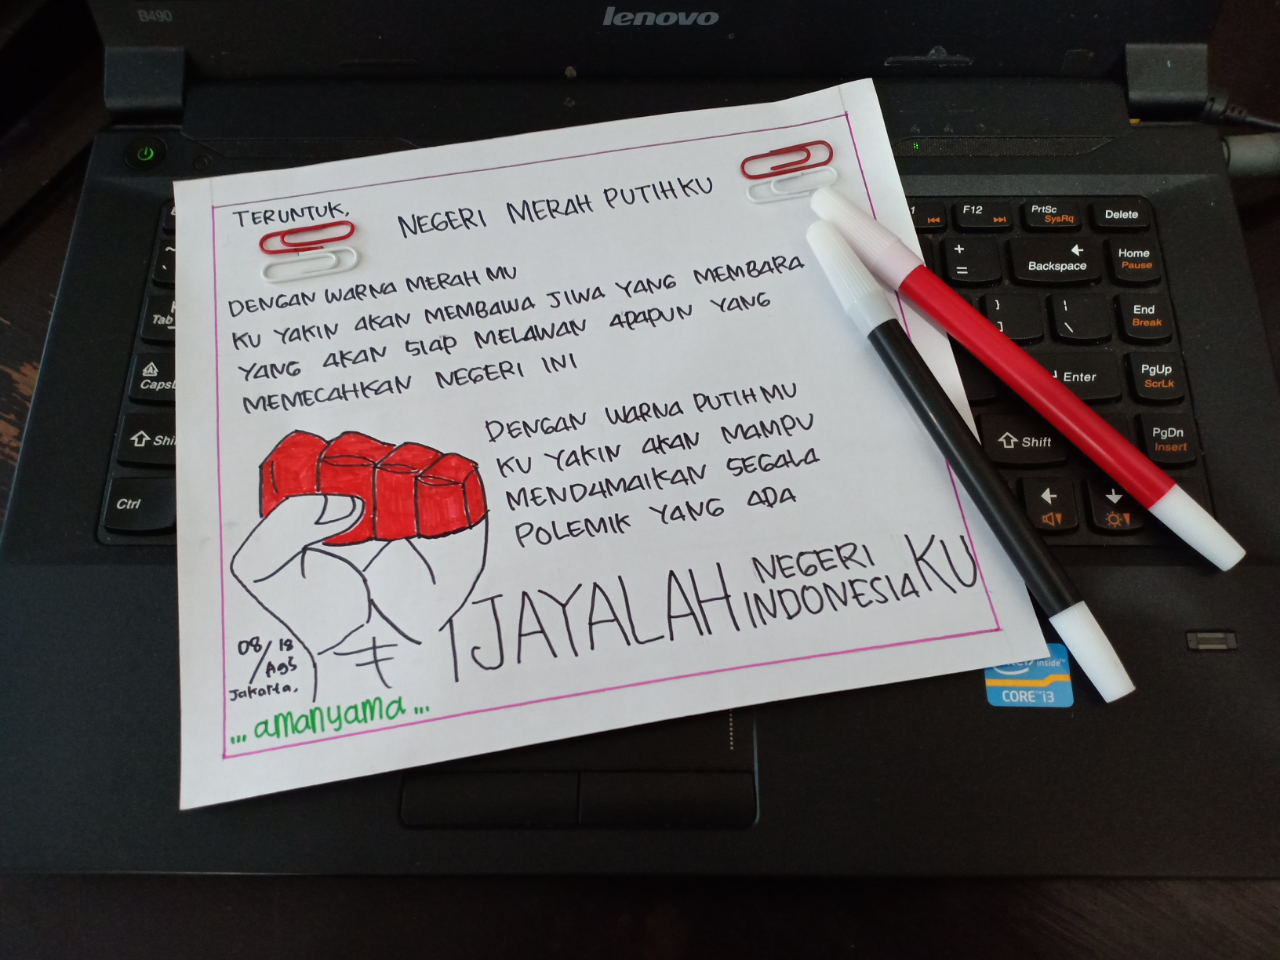 B490
lenovo
TERUNTUK,
NEGERI MERAH PUTIHKU
DENGAN WARNA MERAH MU
KU YAKIN AKAN MEMBAWA JIWA YANG MEMBARA
YANG AKAN SIAP MELAWAN APAPUN YANG
MEMECAHKAN NEGERI INI
DENGAN WARNA PUTIHMU
KU YAKIN AKAN MAMPU
MENDAMAIKAN SEGALA
POLEMIK YANG ADA
JAYALAH NEGERI INDONESIA KU
08/18
Ags
Jakarta.
...amanyama...
F12
PrtSc
SysRq
Delete
+
=
Backspace
Home
Pause
Tab
}
]
|
\
End
Break
Caps
Enter
PgUp
ScrLk
Shi
Shift
PgDn
Insert
Ctrl
inside™
CORE™i3